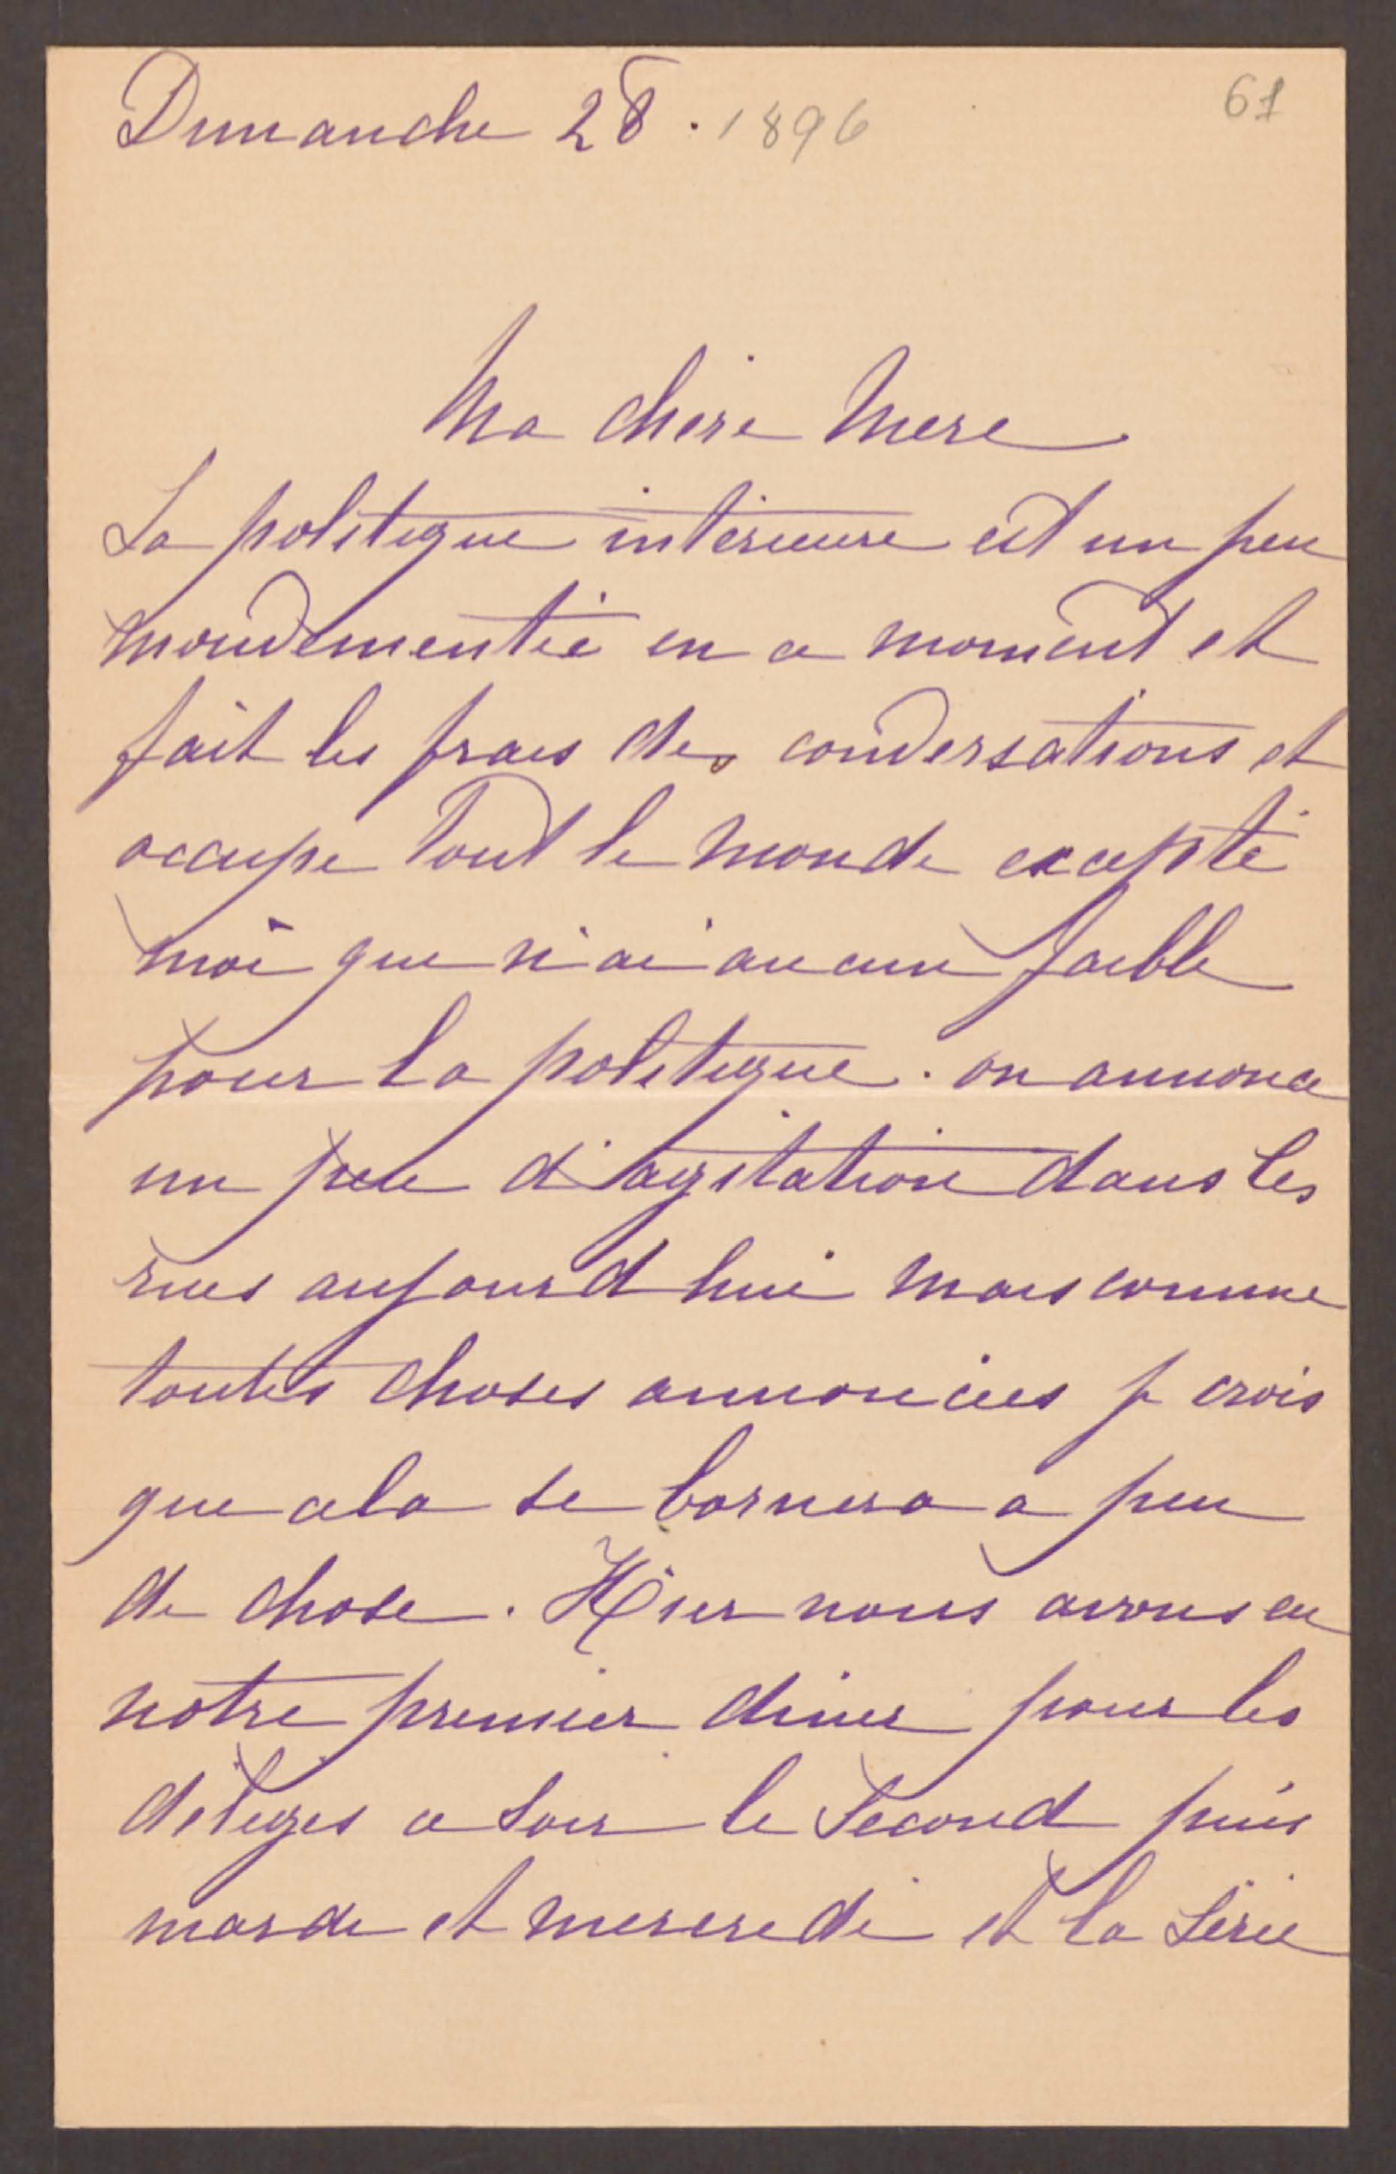 Dimanche 28. 1896
61
Ma chere Mere
La politique interieure est un peu
mouvementée en ce moment et
fait les frais des conversations et
occupe tout le monde excepté
moi que n'ai aucun faible
pour la politique. on annonce
un peu d'agitation dans les
rues aujourd hui mais comme
toutes choses annoncées je crois
que cela se bornera a peu
de chose. Hier nous avons eu
notre premier diner pour les
deleges ce soir le second puis
mardi et mercredi et la série